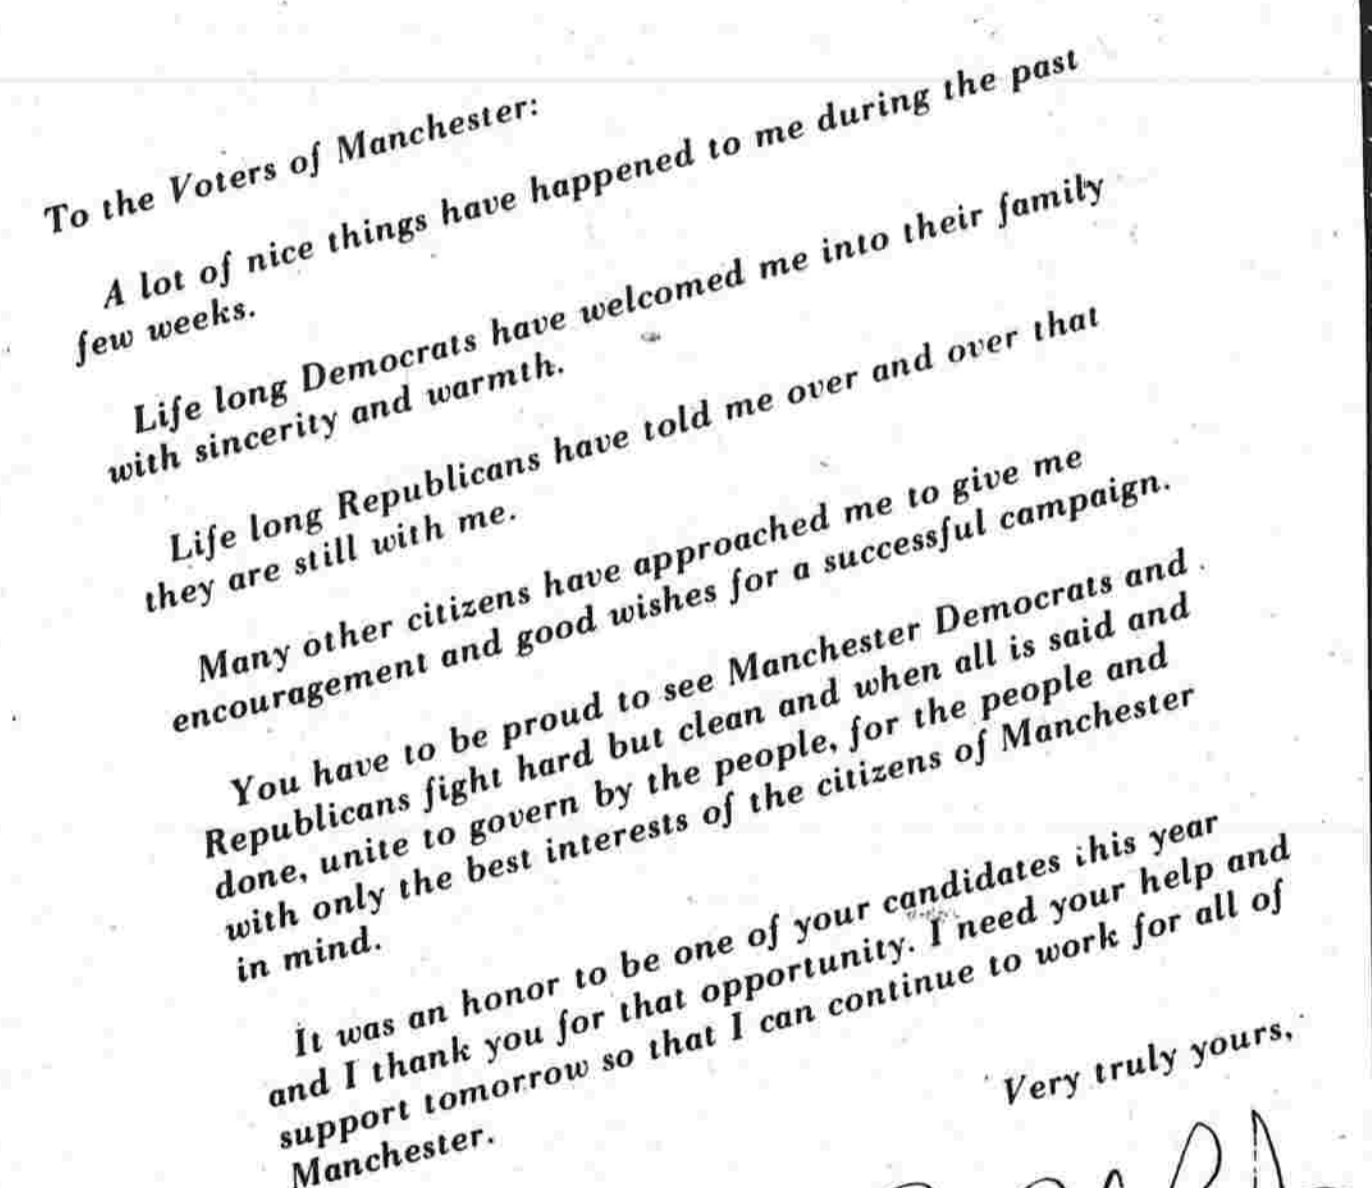 To the Voters of Manchester:
A lot of nice things have happened to me during the past
few weeks.
Life long Democrats have welcomed me into their family
with sincerity and warmth.
Life long Republicans have told me over and over that
they are still with me.
Many other citizens have approached me to give me
encouragement and good wishes for a successful campaign.
You have to be proud to see Manchester Democrats and
Republicans fight hard but clean and when all is said and
done, unite to govern by the people, for the people and
with only the best interests of the citizens of Manchester
in mind.
It was an honor to be one of your candidates this year
and I thank you for that opportunity. I need your help and
support tomorrow so that I can continue to work for all of
Manchester.
Very truly yours,